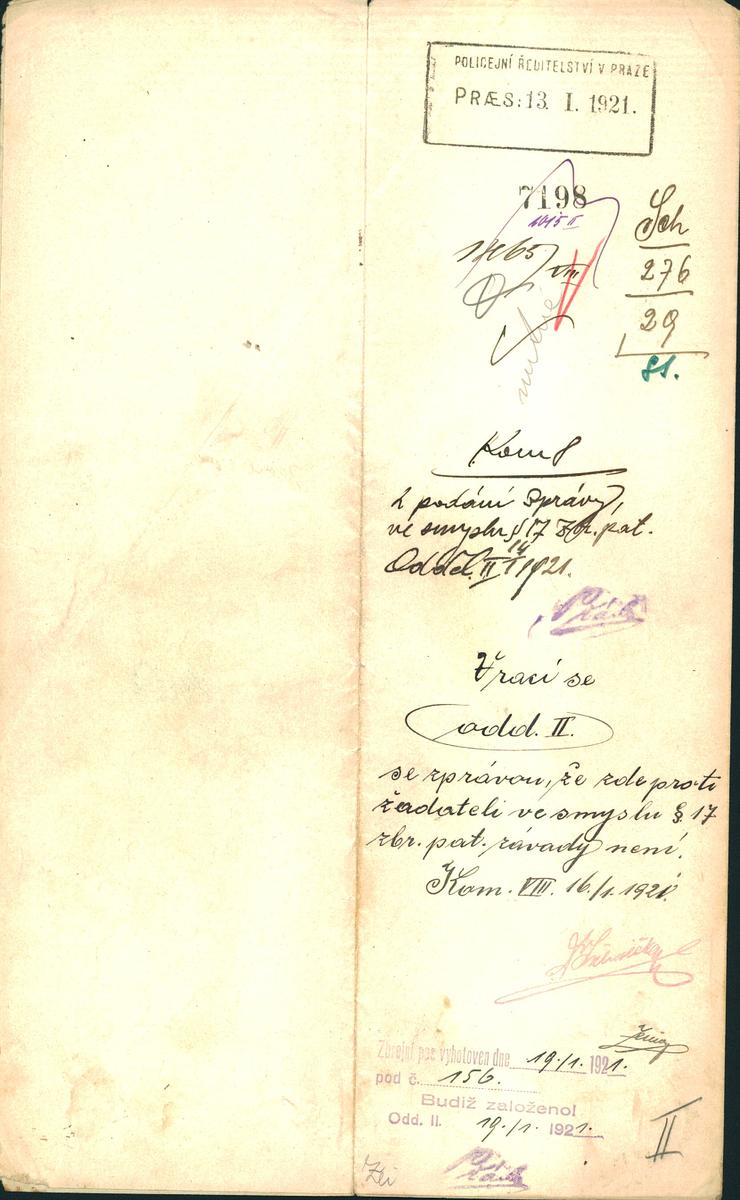 POLICEJNÍ ŘEDITELSTVÍ V PRAZE
PRÆS: 13. I. 1921.
7198
1015 II
Sch
276
29
VIII
k podání zprávy,
ve smyslu § 17 zbr. pat.
Odděl. II 14/I 1921.
Vrací se
odd. II.
se zprávou, že zde proti
žadateli ve smyslu §. 17
zbr. pat. závady není.
Kom. VIII. 16./1. 1921.
Zbrojní pas vyhotoven dne 19./1. 1921.
pod č. 156.
Budiž založeno!
Odd. II. 19./1. 1921.
II